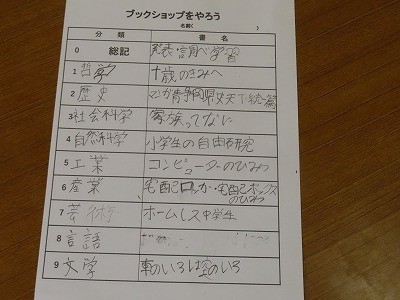 ブックショップをやろう
名前く ＞
分類 書名
0 総記 発表・調べ学習
1 哲学 十歳のきみへ
2 歴史 県 天下統一篇
3 社会科学 家族ってなに
4 自然科学 小学生の自由研究
5 工業 コンピューターのひみつ
6 産業 宅配ロッカー・宅配ボックスのひみつ
7 芸術 ホームレス中学生
8 言語
9 文学 車のいろは空のいろ